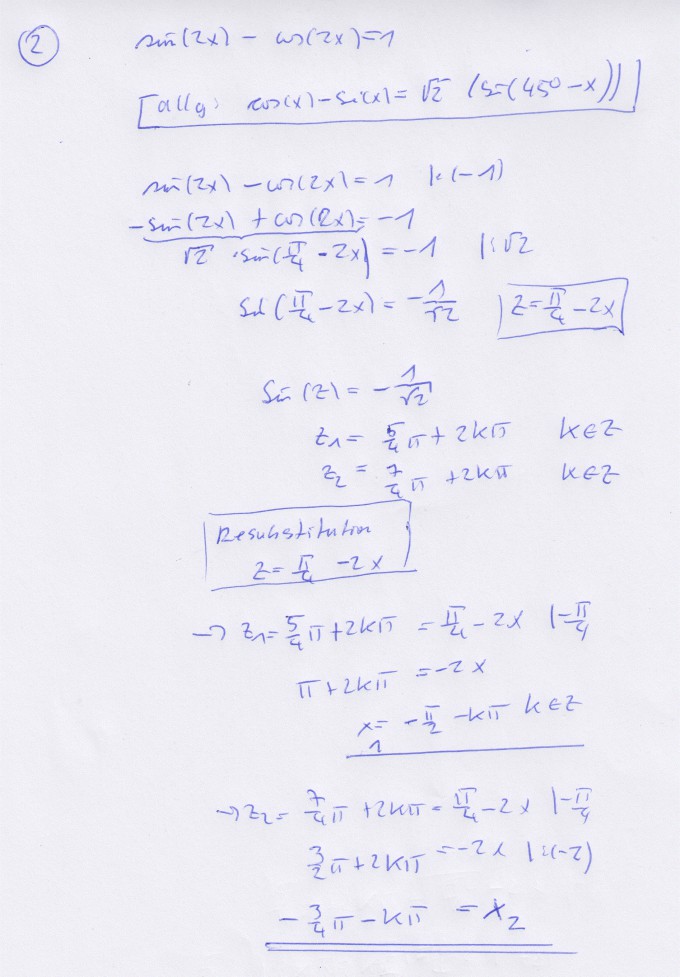 2
sin(2x) - cos(2x)=1
[allg: cos(x)-sin(x)= √2 (sin(45°-x))]
sin(2x) - cos(2x)= 1 |·(-1)
-sin(2x) + cos(2x)= -1
√2 · sin(π/4 - 2x) = -1 |:√2
sin(π/4 - 2x) = -1/√2 z = π/4 - 2x
Sin (z) = - 1/√2
z1 = 5/4 π + 2kπ k∈Z
z2 = 7/4 π + 2kπ k∈Z
Resubstitution
z = π/4 - 2x
→ z1= 5/4 π+2kπ = π/4 - 2x |-π/4
π+2kπ = -2x
x1 = -π/2 - kπ k∈Z
→ z2 = 7/4 π + 2kπ = π/4 - 2x |-π/4
3/2 π+2kπ = -2x |:(-2)
-3/4 π - kπ = x2